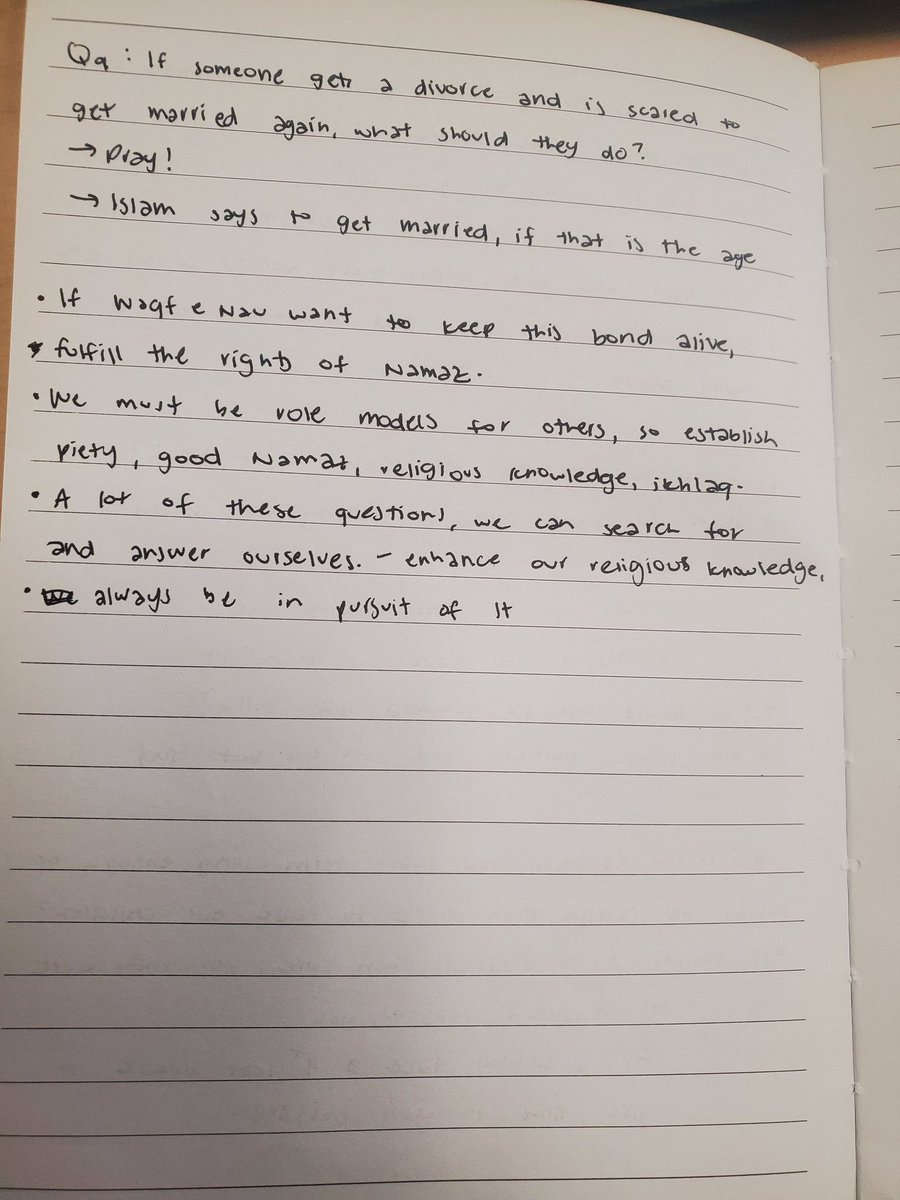 Q9: If someone gets a divorce and is scared to
get married again, what should they do?
→ Pray!
→ Islam says to get married, if that is the age
• If Waqf e Nau want to keep this bond alive,
fulfill the rights of Namaz.
• We must be role models for others, so establish
piety, good Namaz, religious knowledge, ikhlaq.
• A lot of these questions, we can search for
and answer ourselves. - enhance our religious knowledge,
• always be in pursuit of it